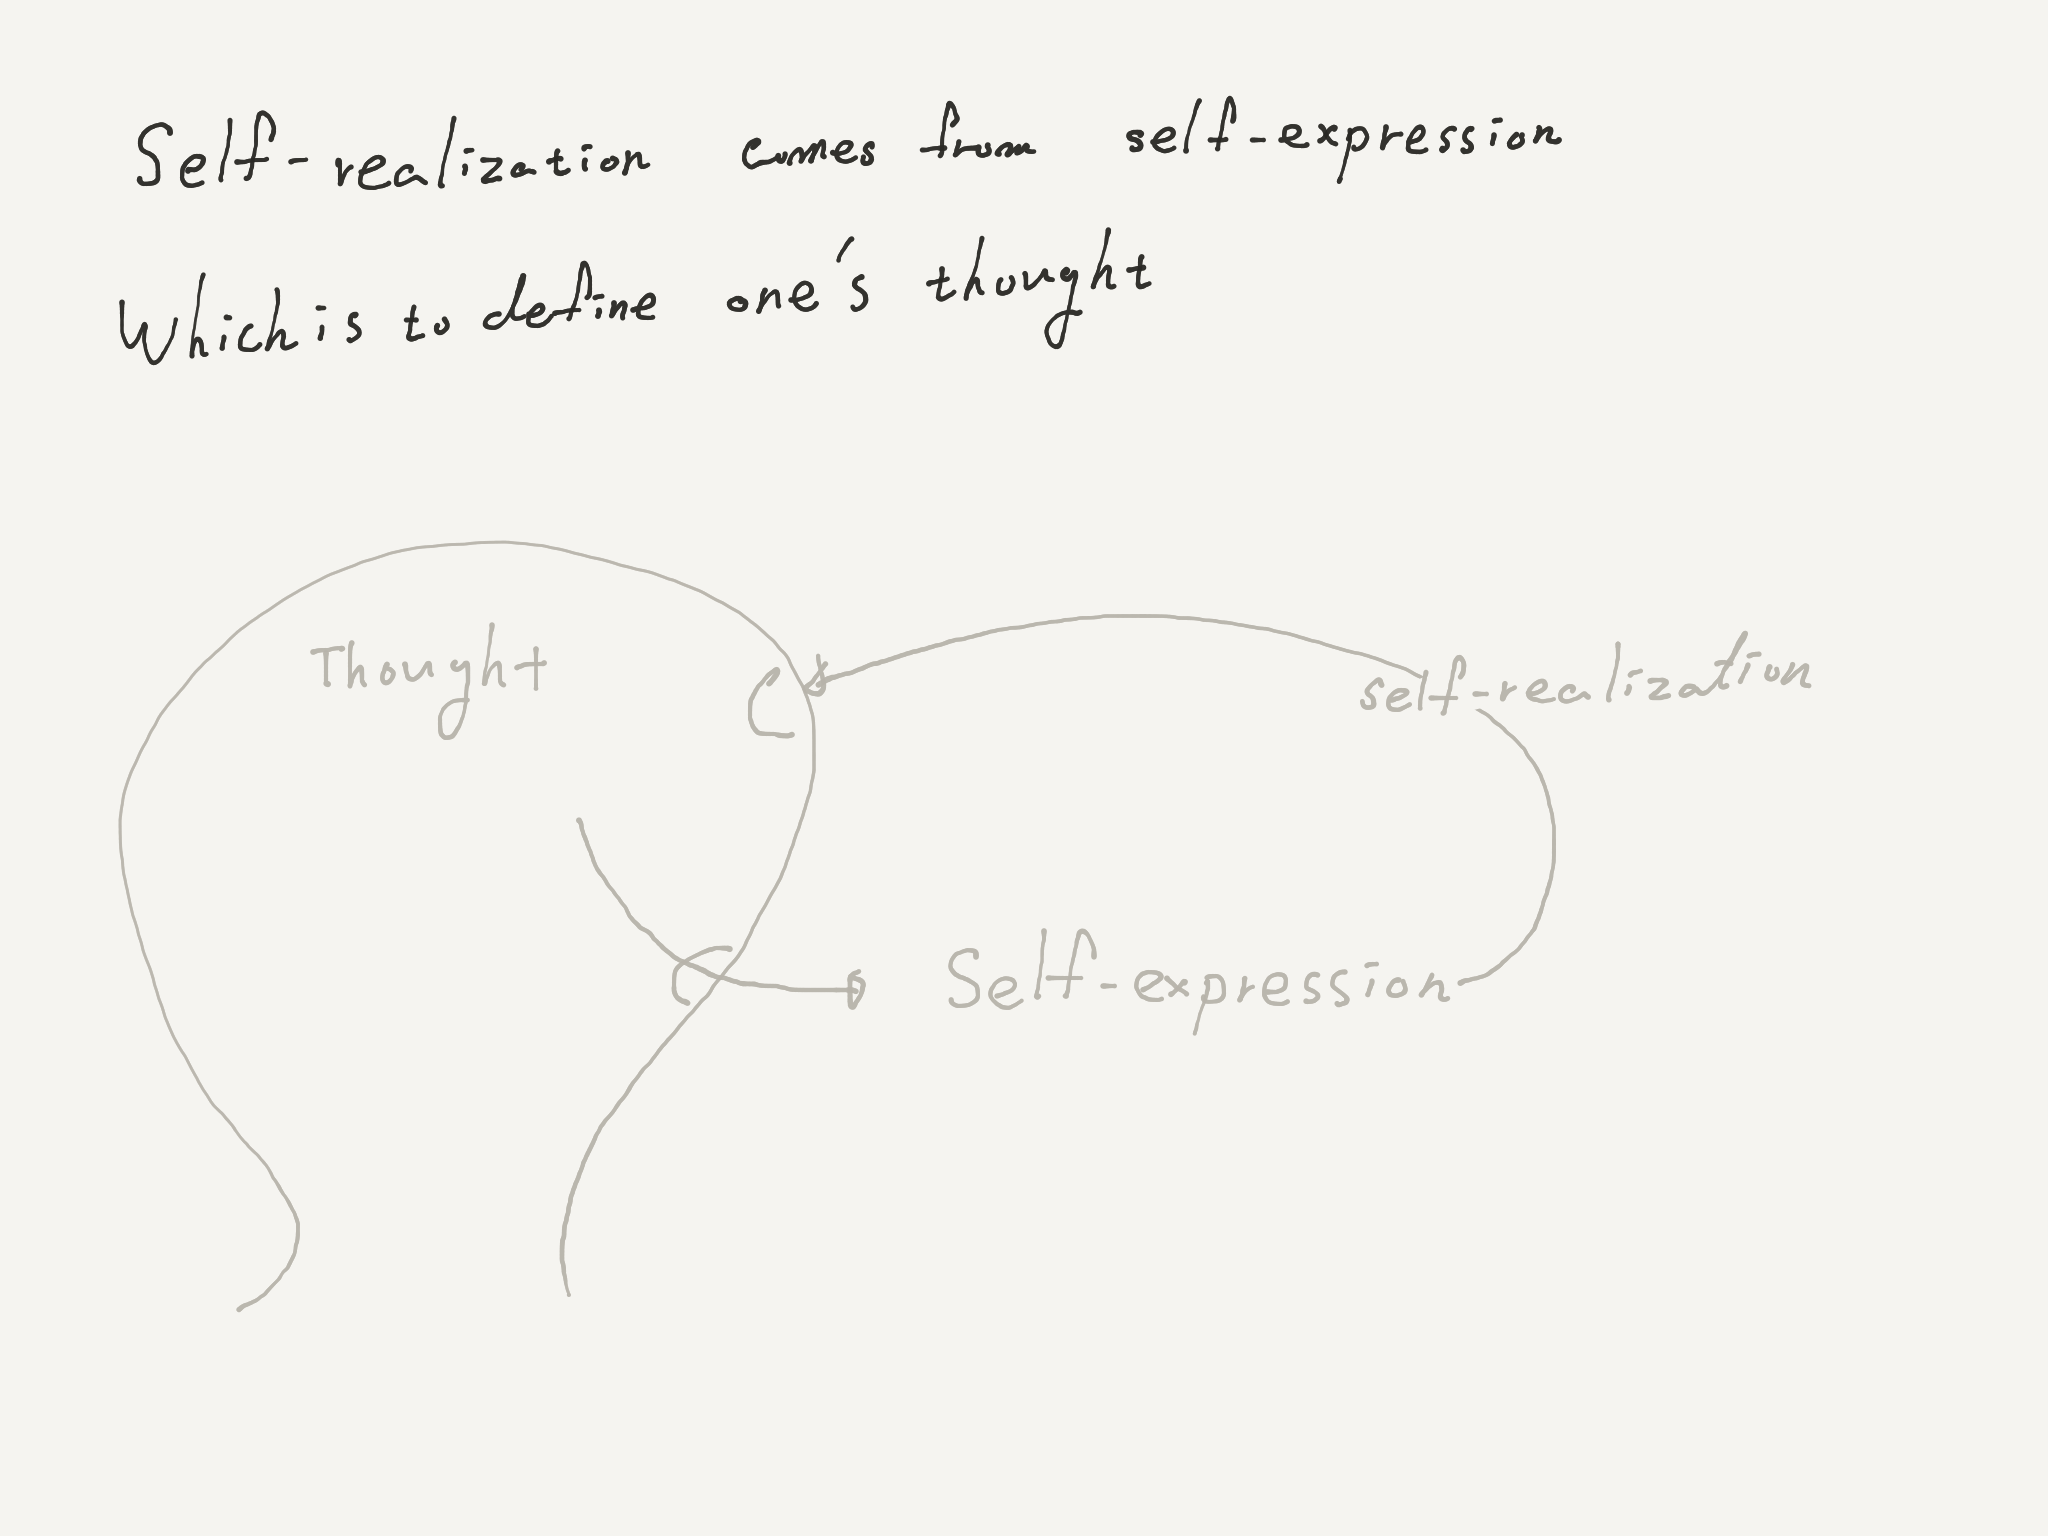 Self-realization comes from self-expression
Which is to define one's thought
Thought
self-realization
Self-expression